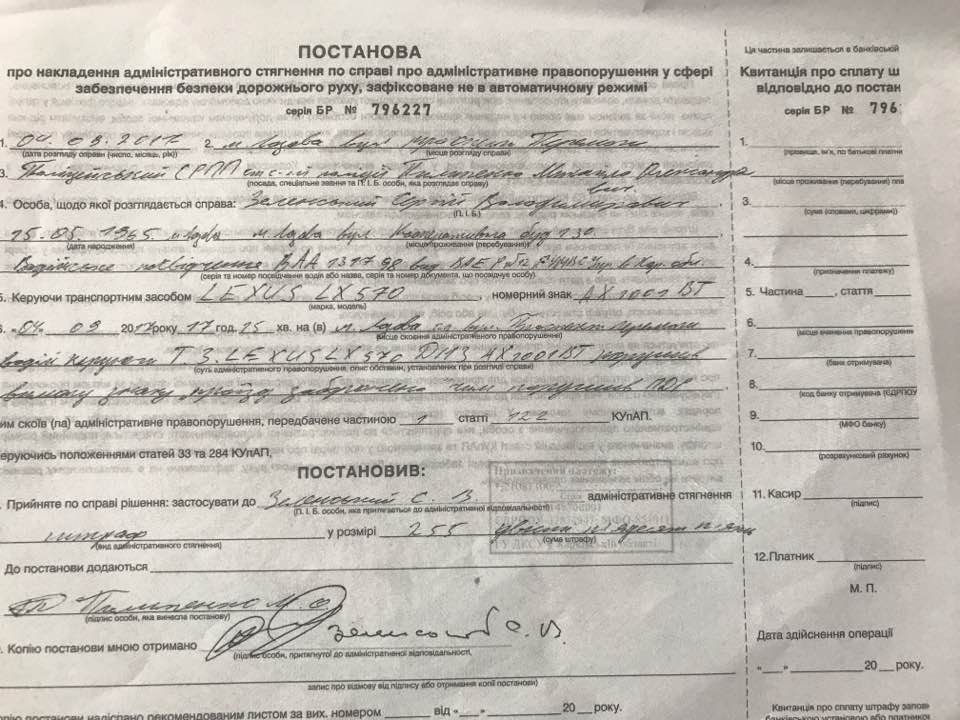 ПОСТАНОВА
про накладення адміністративного стягнення по справі про адміністративне правопорушення у сфері
забезпечення безпеки дорожнього руху, зафіксоване не в автоматичному режимі
серія БР № 796227
1. 04. 09. 2017 2. м Лозова вул
(дата розгляду справи (число, місяць, рік)) (місце розгляду справи)
3. Поліцейський СРПП Михайло
(посада, спеціальне звання та П. І. Б. особи, яка розглядає справу)
4. Особа, щодо якої розглядається справа: Зеленський Сергій Володимирович
(П. І. Б.)
25.05. 1965 м Лозова вул буд 130
(дата народження) (місце проживання (перебування))
Водійське посвідчення ВАА 131798 вид
(серія та номер посвідчення водія або назва, серія та номер документа, що посвідчує особу)
5. Керуючи транспортним засобом LEXUS LX570, номерний знак АХ1001ВТ
(марка, модель)
6. «04» 09 2017 року, 17 год. 25 хв. на (в) м. Лозова вул.
(місце скоєння адміністративного правопорушення)
водій керуючи Т З. LEXUS LX570 ДНЗ АХ1001ВТ порушив
(суть адміністративного правопорушення, опис обставин, установлених при розгляді справи)
вимогу знаку проїзд заборонено чим порушив ПДР
им скоїв (ла) адміністративне правопорушення, передбачене частиною 1 статті 122 КУпАП.
еруючись положеннями статей 33 та 284 КУпАП,
ПОСТАНОВИВ:
. Прийняте по справі рішення: застосувати до Зеленський С. В. адміністративне стягнення
(П. І. Б. особи, яка притягається до адміністративної відповідальності)
штраф у розмірі 255 двісті п'ятдесят п'ять
(вид адміністративного стягнення) (сума штрафу)
До постанови додаються
М. О.
(підпис особи, яка винесла постанову)
. Копію постанови мною отримано С. В.
(підпис особи, притягнутої до адміністративної відповідальності,
запис про відмову від підпису або отримання копії постанови)
опію постанови надіслано рекомендованим листом за вих. номером від «» 20 року.
Призначення платежу:
Ця частина залишається в банківській
Квитанція про сплату ш
відповідно до постан
серія БР № 796
1.
(прізвище, ім'я, по батькові платни
2.
(місце проживання (перебування) пла
3.
(сума (словами, цифрами))
4.
(призначення платежу)
5. Частина , стаття
6.
(місце вчинення правопорушення)
7.
(банк отримувача)
8.
(код банку отримувача (ЄДРПОУ
9.
(МФО банку)
10.
(розрахунковий рахунок)
11. Касир
(підпис)
12. Платник
(підпис)
М. П.
Дата здійснення операції
«» 20 року.
Квитанція про сплату штрафу запов
банківською установою або платником